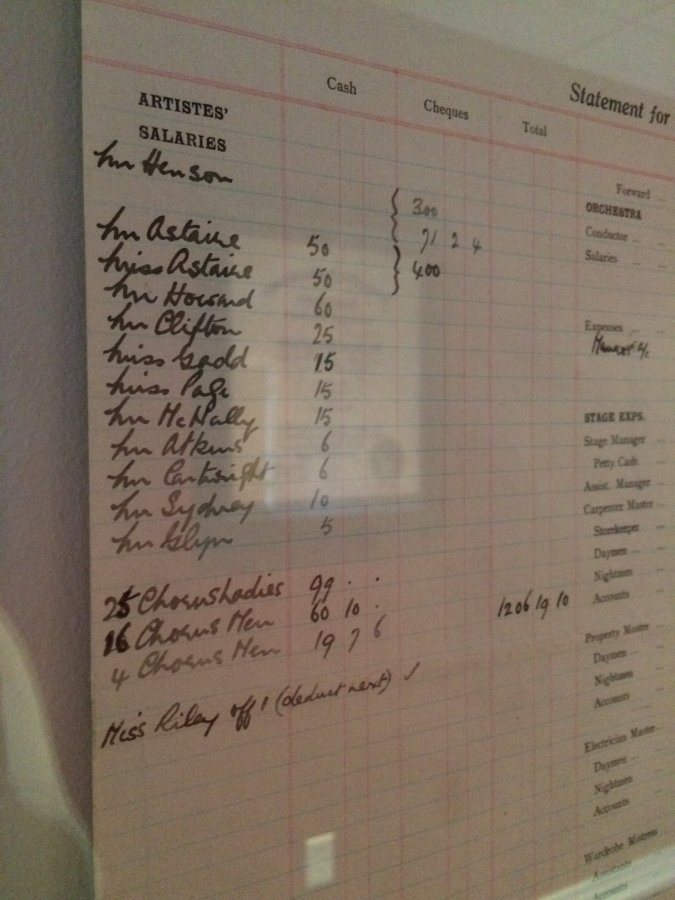 Statement for
Cash
Cheques
Total
ARTISTES'
SALARIES
Mr Henson
300
Forward
ORCHESTRA
Mr Astaire 50 71 2 4
Conductor
Miss Astaire 50 400
Salaries
Mr Howard 60
Mr Clifton 25
Expenses
Miss Gadd 15
Miss Page 15
Mr McNally 15
STAGE EXPS.
Mr Atkins 6
Stage Manager
Mr Cartwright 6
Petty Cash
Mr Sydney 10
Assist. Manager
Mr Glyn 5
Carpenter Master
Storekeeper
Daymen
Nightmen
Accounts
25 Chorus Ladies 99 . .
16 Chorus Men 60 10 . 1206 19 10
4 Chorus Men 19 7 6
Property Master
Daymen
Nightmen
Accounts
Miss Riley off! (deduct next) ✓
Electrician Master
Daymen
Nightmen
Accounts
Wardrobe Mistress
Assistants
Accounts